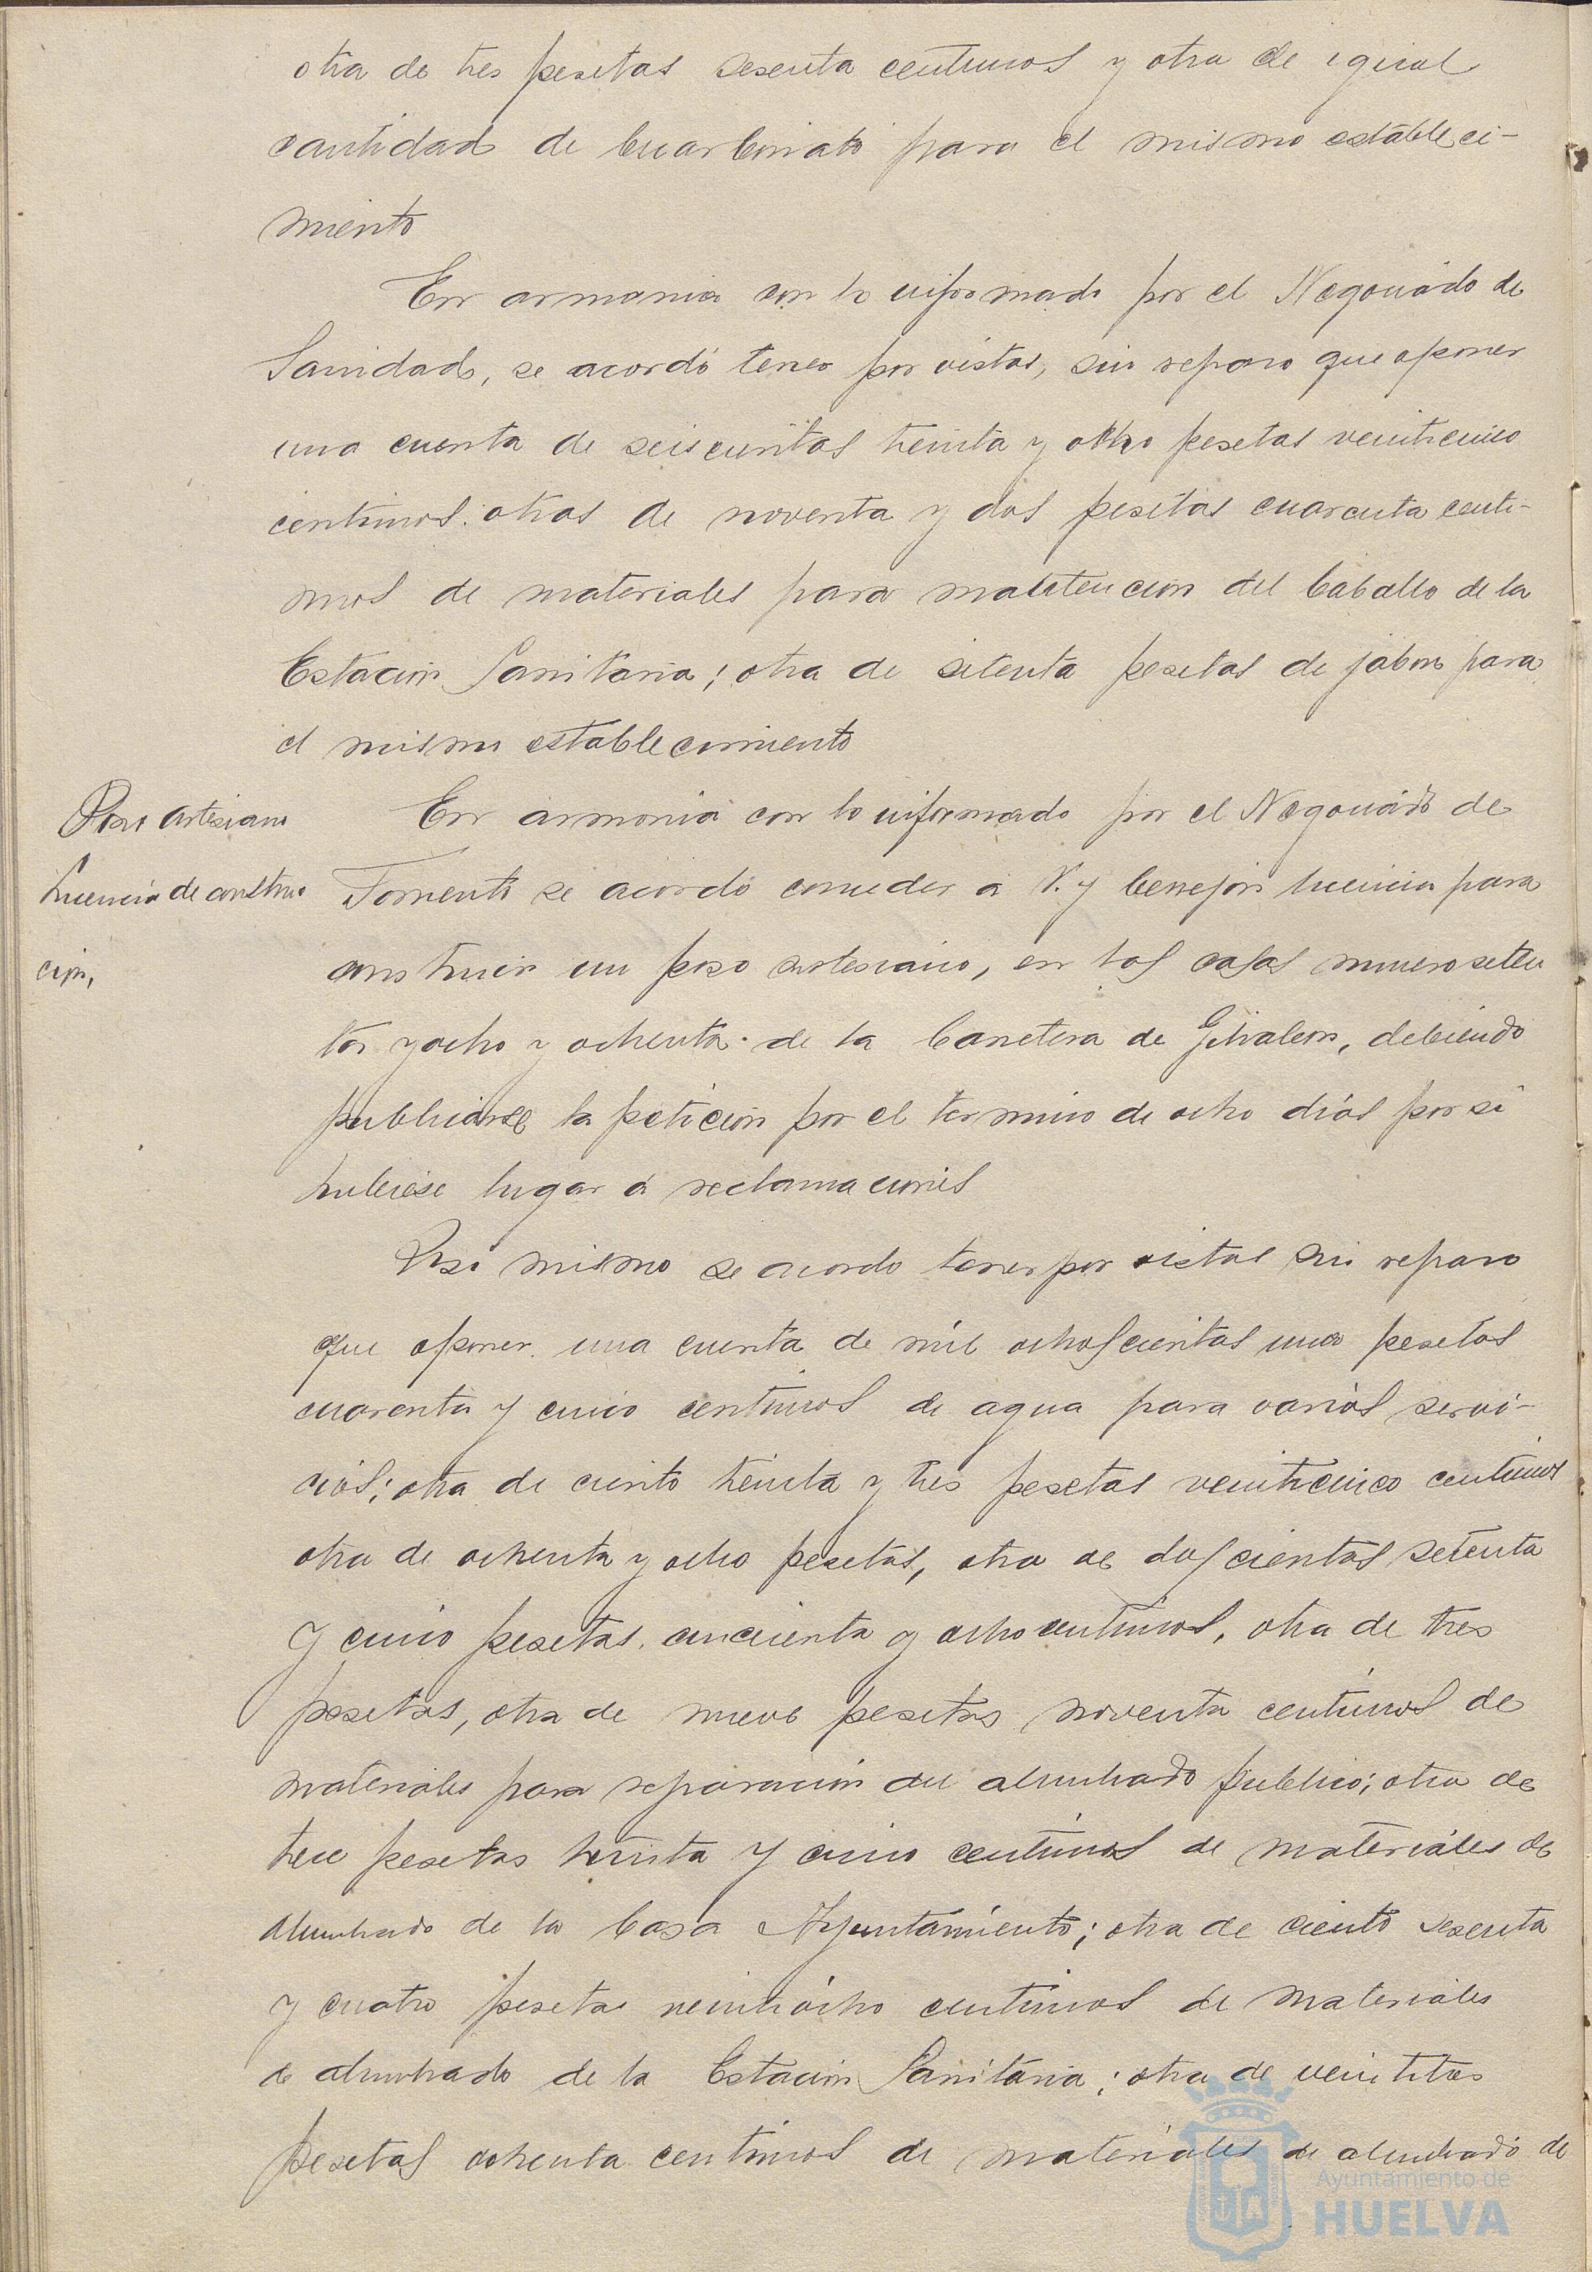 otra de tres pesetas sesenta centimos y otra de igual
cantidad de bicarbonato para el mismo estableci-
miento
En armonia con lo informado por el Negociado de
Sanidad, se acordó tener por vistas, sin reparo que oponer
una cuenta de seiscientas treinta y ocho pesetas veinticinco
centimos: otras de noventa y dos pesetas cuarenta centi-
mos de materiales para manutencion del Caballo de la
Estacion Sanitaria; otra de setenta pesetas de jabon para
el mismo establecimiento
Poso artesiano
Licencia de construc
cion,
En armonia con lo informado por el Negociado de
Fomento se acordo conceder á licencia para
construir un poso artesiano, en las casas numero seten
ta y ocho y ochenta de la Carretera de Gibraleon, debiendo
publicarse la peticion por el termino de ocho dias por si
hubiese lugar á reclamaciones
Asi mismo se acordo tener por vistas sin reparo
que oponer una cuenta de mil ochoscientas una pesetas
cuarenta y cinco centimos de agua para varios servi-
cios; otra de ciento treinta y tres pesetas veinticinco centimos
otra de ochenta y ocho pesetas, otra de doscientas setenta
y cinco pesetas cincuenta y ocho centimos, otra de tres
pesetas, otra de nueve pesetas noventa centimos de
materiales para reparacion del alumbrado publico; otra de
trece pesetas treinta y cinco centimos de materiales de
alumbrado de la Casa Ayuntamiento; otra de ciento sesenta
y cuatro pesetas veintiocho centimos de materiales
de alumbrado de la Estacion Sanitaria; otra de veintitres
pesetas ochenta centimos de materiales de alumbrado de
Ayuntamiento de
HUELVA